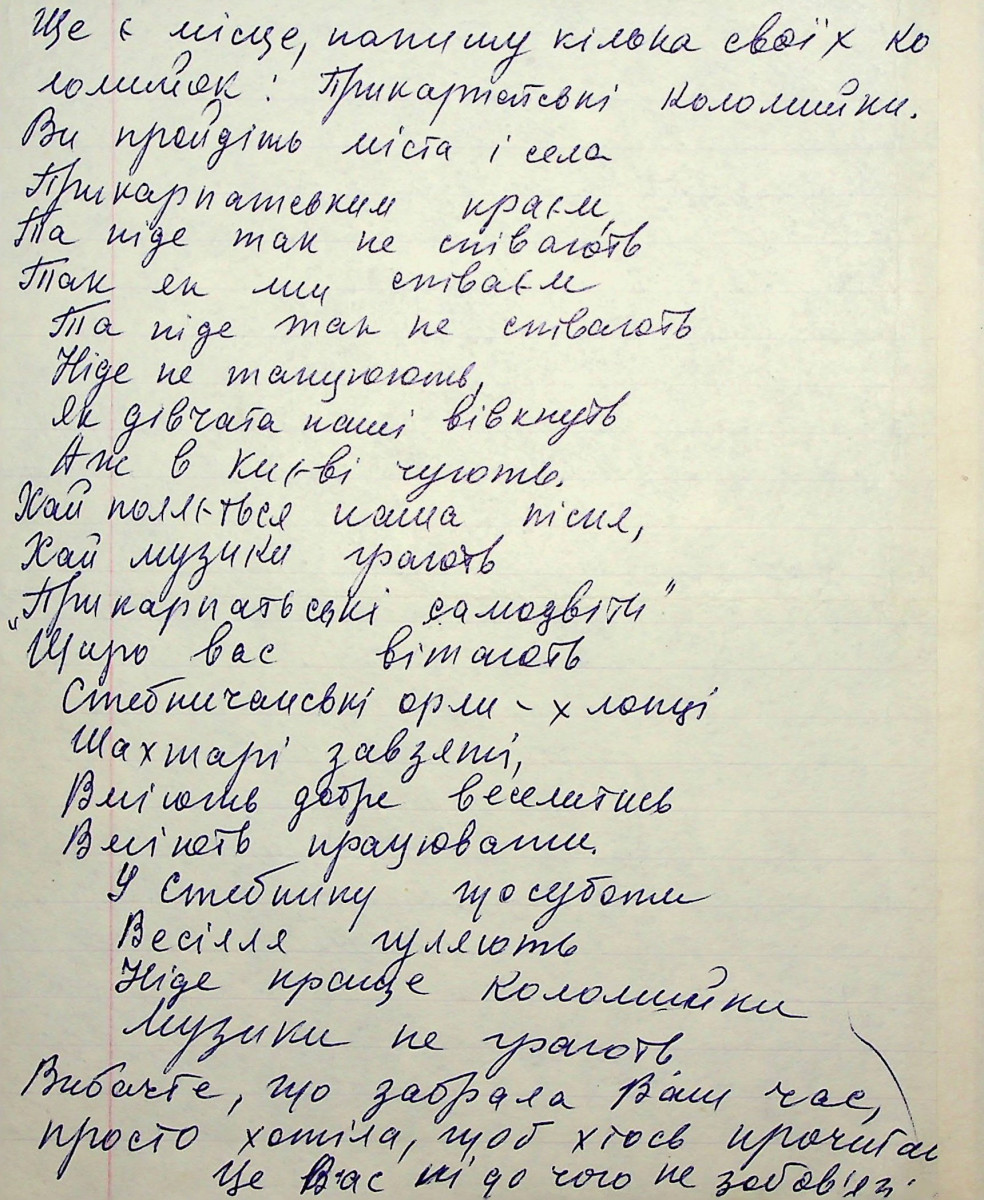 Ще є місце, напишу кілька своїх ко
ломийок: Прикарпатські коломийки.
Ви пройдіть міста і села
Прикарпатським краєм,
Та ніде так не співають
Так як ми співаєм
Та ніде так не співають
Ніде не танцюють,
Як дівчата наші вівкнуть
Аж в Києві чують.
Хай поллється наша пісня,
Хай музики грають
"Прикарпатьські самоцвіти"
Щиро вас вітають
Стебничанські орли - хлопці
Шахтарі завзяті,
Вміють добре веселитись
Вміють працювати.
У Стебнику щосуботи
Весілля гуляють
Ніде краще коломийки
Музики не грають
Вибачте, що забрала Ваш час,
просто хотіла, щоб хтось прочитав
Це Вас ні до чого не зобов'яз.